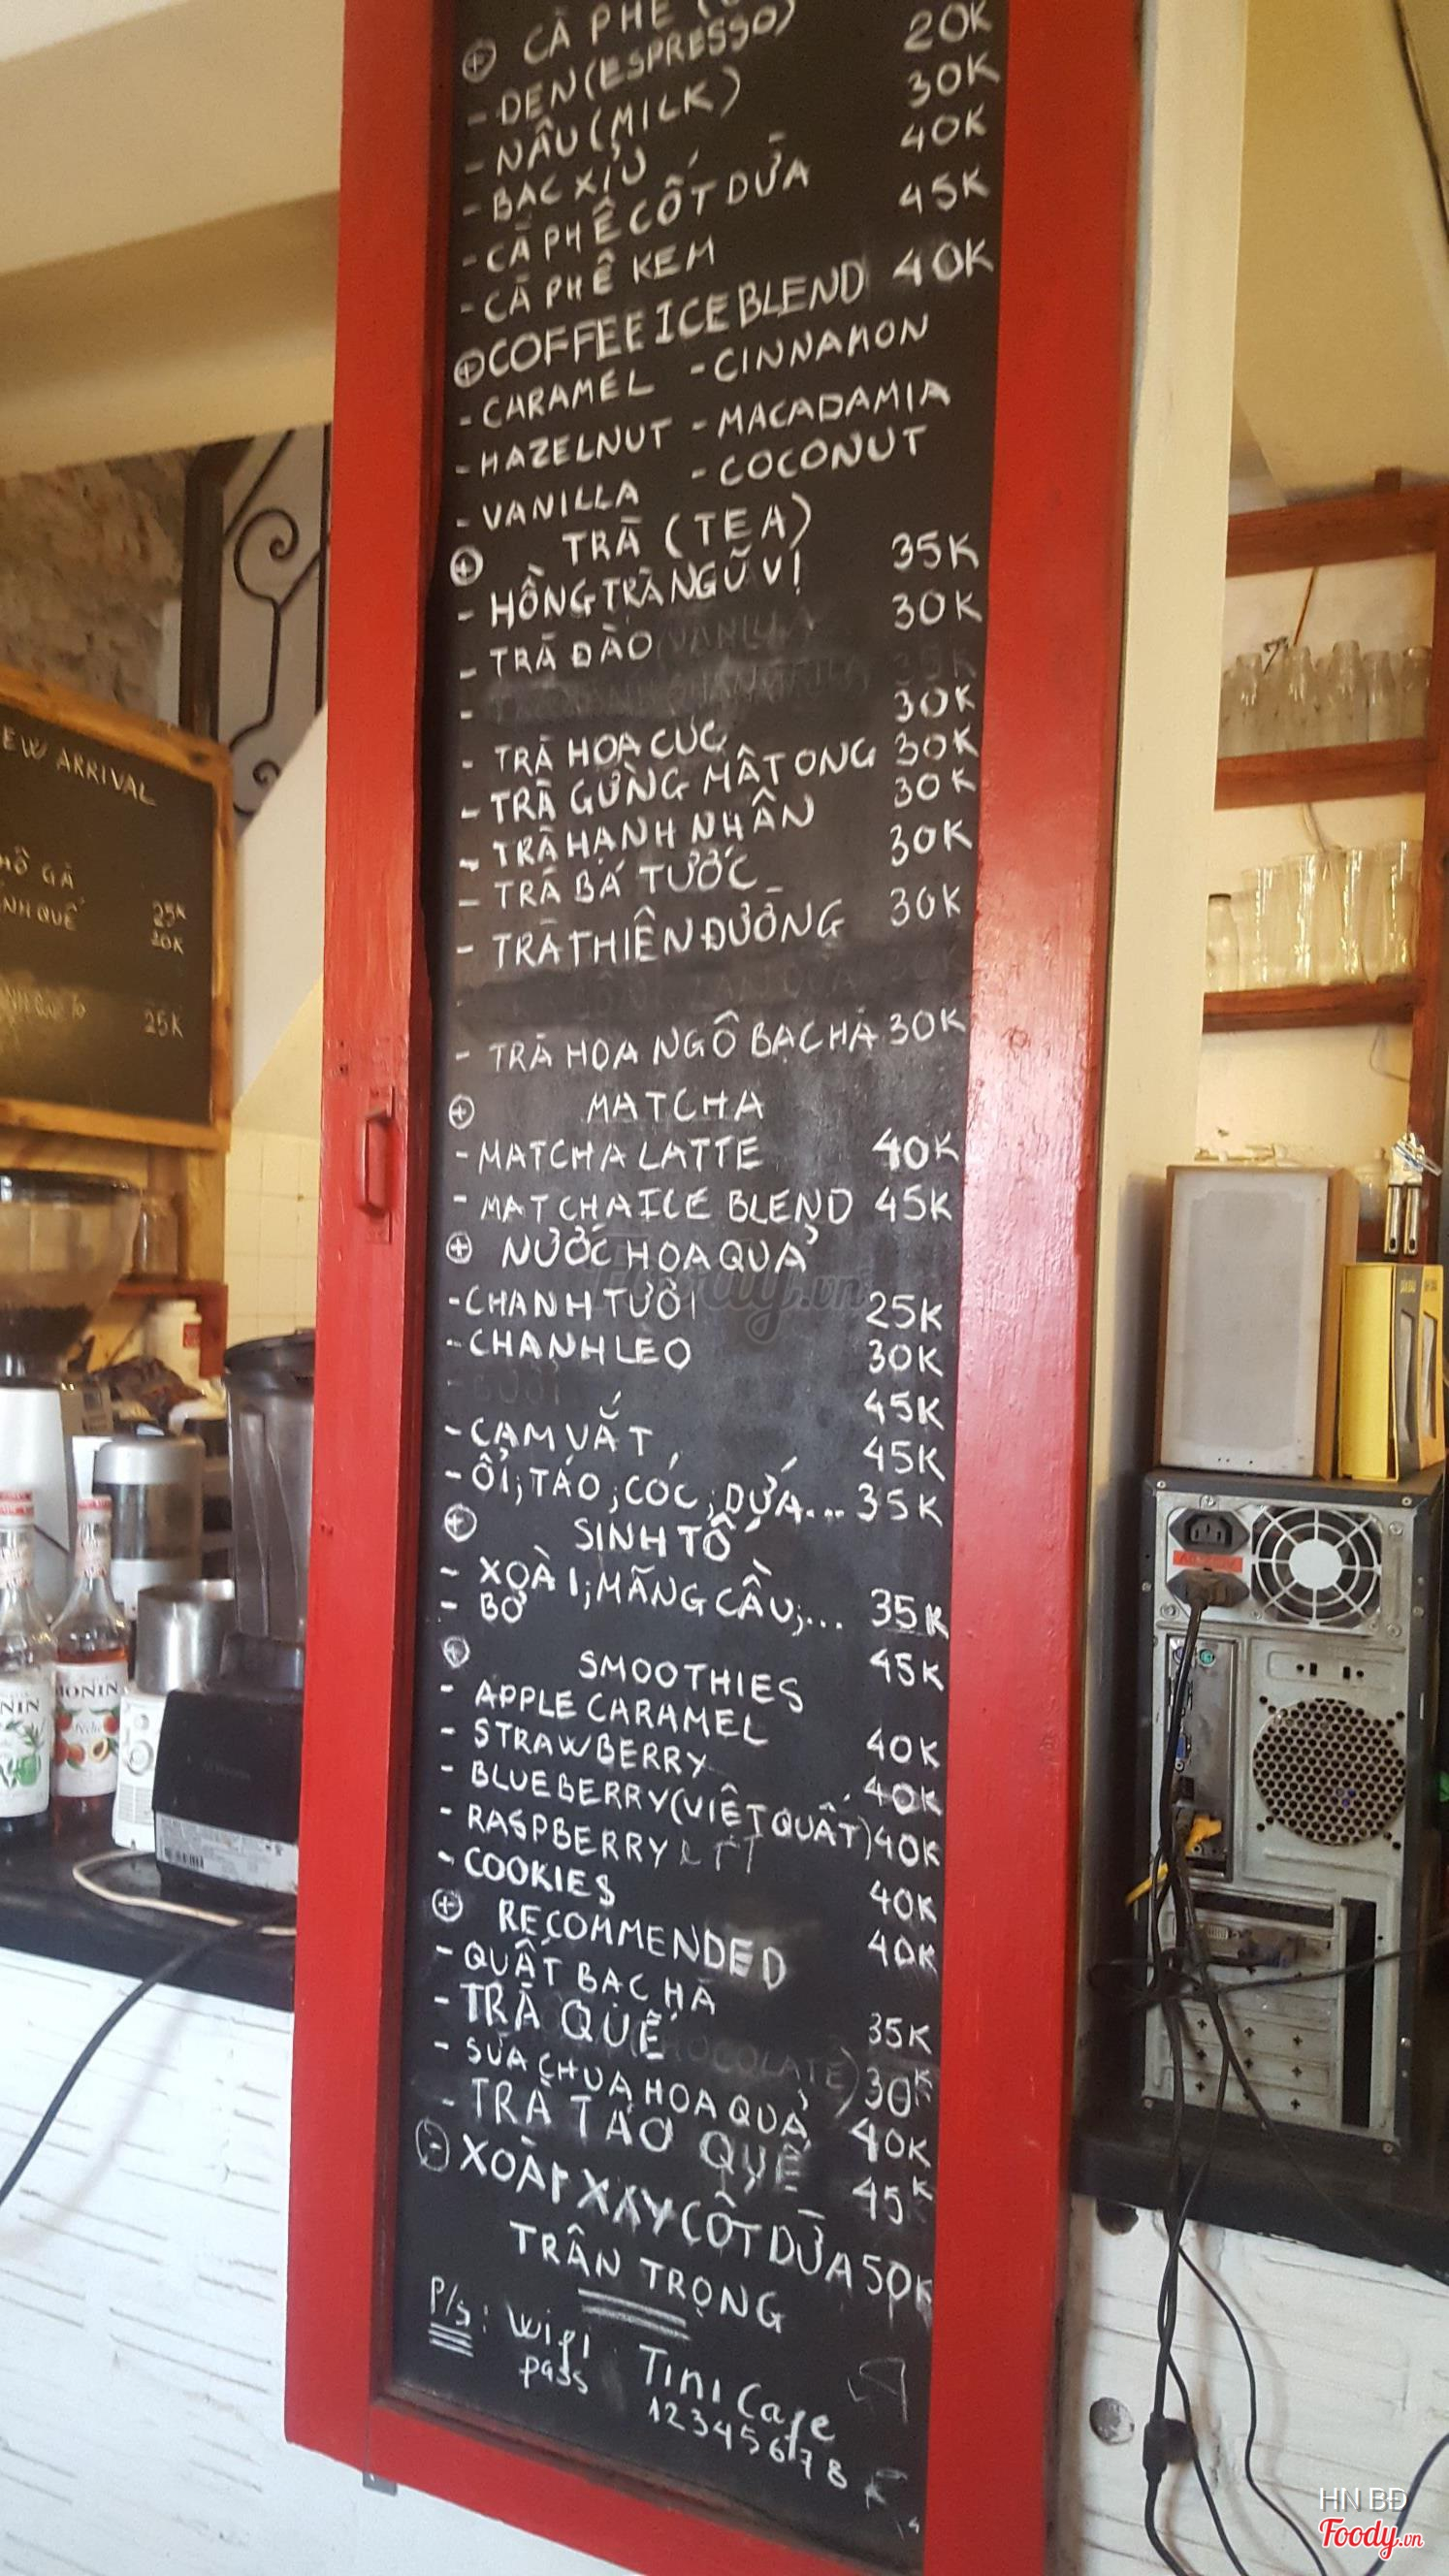 ⊕ CÀ PHÊ
- ĐEN (ESPRESSO) 20K
- NÂU (MILK) 30K
- BẠC XỈU 40K
- CÀ PHÊ CỐT DỪA 45K
- CÀ PHÊ KEM
⊕ COFFEE ICE BLEND 40K
- CARAMEL - CINNAMON
- HAZELNUT - MACADAMIA
- VANILLA - COCONUT
⊕ TRÀ (TEA)
- HỒNG TRÀ NGŨ VỊ 35K
- TRÀ ĐÀO 30K
-
- TRÀ HOA CÚC 30K
- TRÀ GỪNG MẬT ONG 30K
- TRÀ HẠNH NHÂN 30K
- TRÀ BÁ TƯỚC 30K
- TRÀ THIÊN ĐƯỜNG 30K
- TRÀ HOA NGÔ BẠC HÀ 30K
⊕ MATCHA
- MATCHA LATTE 40K
- MATCHA ICE BLEND 45K
⊕ NƯỚC HOA QUẢ
- CHANH TƯƠI 25K
- CHANH LEO 30K
45K
- CAM VẮT 45K
- ỔI; TÁO; CÓC; DỨA... 35K
⊕ SINH TỐ
- XOÀI; MÃNG CẦU;... 35K
- BƠ 45K
⊕ SMOOTHIES
- APPLE CARAMEL 40K
- STRAWBERRY 40K
- BLUEBERRY (VIỆT QUẤT) 40K
- RASPBERRY 40K
- COOKIES 40K
⊕ RECOMMENDED
- QUẤT BẠC HÀ 35K
- TRÀ QUẾ 30K
- SỮA CHUA HOA QUẢ 40K
- TRÀ TÁO QUẾ 45K
- XOÀI XAY CỐT DỪA 50K
TRÂN TRỌNG
P/s: Wifi: Tini Cafe
pass 12345678
NEW ARRIVAL
25K
30K
25K
MONIN
Foody.vn
HN BD
Foody.vn